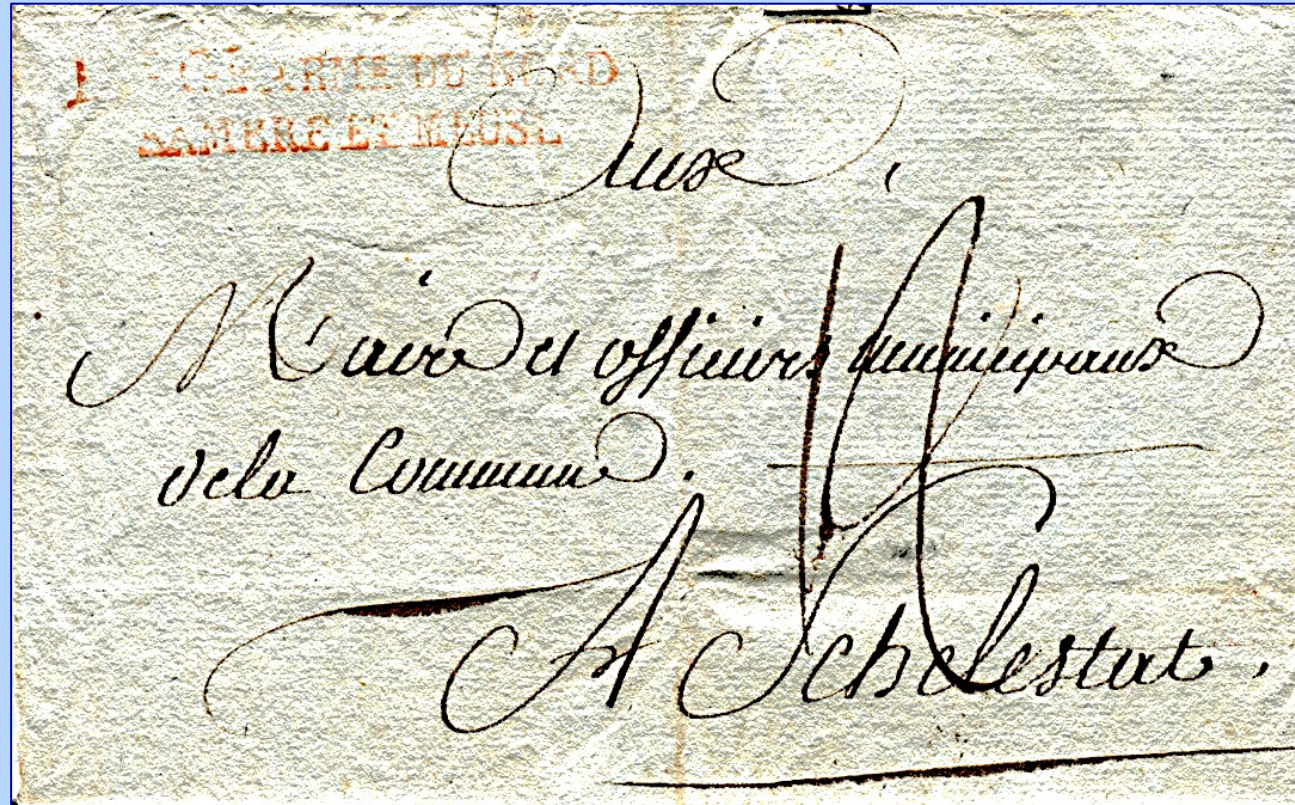 ARMÉE DU NORD
SAMBRE ET MEUSE
Aux
Maire et officiers municipaux
de la Commune.
A Schelestat.